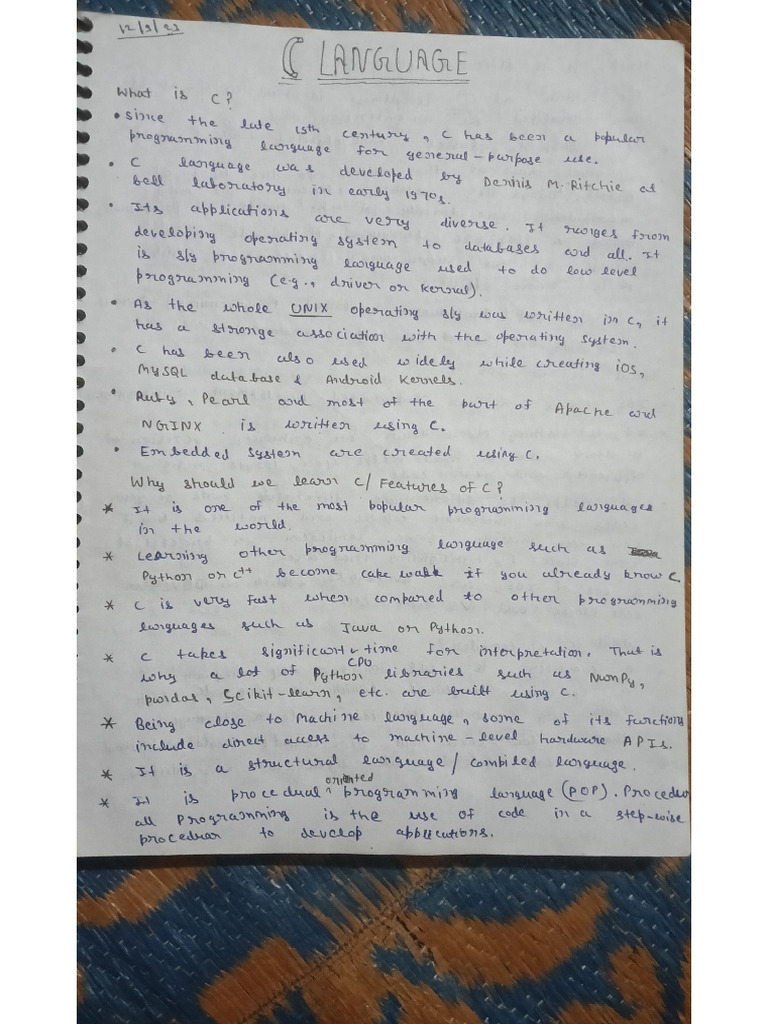 12/9/23
C LANGUAGE
What is C?
• Since the late 19th century, C has been a popular
programming language for general-purpose use.
• C language was developed by Dennis M. Ritchie at
bell laboratory in early 1970s.
• Its applications are very diverse. It ranges from
developing operating system to databases and all. It
is s/y programming language used to do low level
programming (e.g., driver or kernal).
• As the whole UNIX operating s/y was written in C, it
has a stronge association with the operating system.
• C has been also used widely while creating iOS,
MySQL database & Android Kernels.
• Ruby, Pearl and most of the part of Apache and
NGINX is written using C.
• Embedded System are created using C.
Why should we learn C/ Features of C?
* It is one of the most popular programming languages
in the world.
* Learning other programming language such as
Python or C++ become cake walk if you already know C.
* C is very fast when compared to other programming
languages such as Java or Python.
* C takes significant CPU time for interpretation. That is
why a lot of Python libraries such as NumPy,
pandas, Scikit-learn, etc. are built using C.
* Being close to Machine language, some of its functions
include direct access to machine-level hardware APIs.
* It is a structural language/ compiled language.
* It is procedual oriented programming language (POP). Procedur
all Programming is the use of code in a step-wise
procedrar to develop applications.